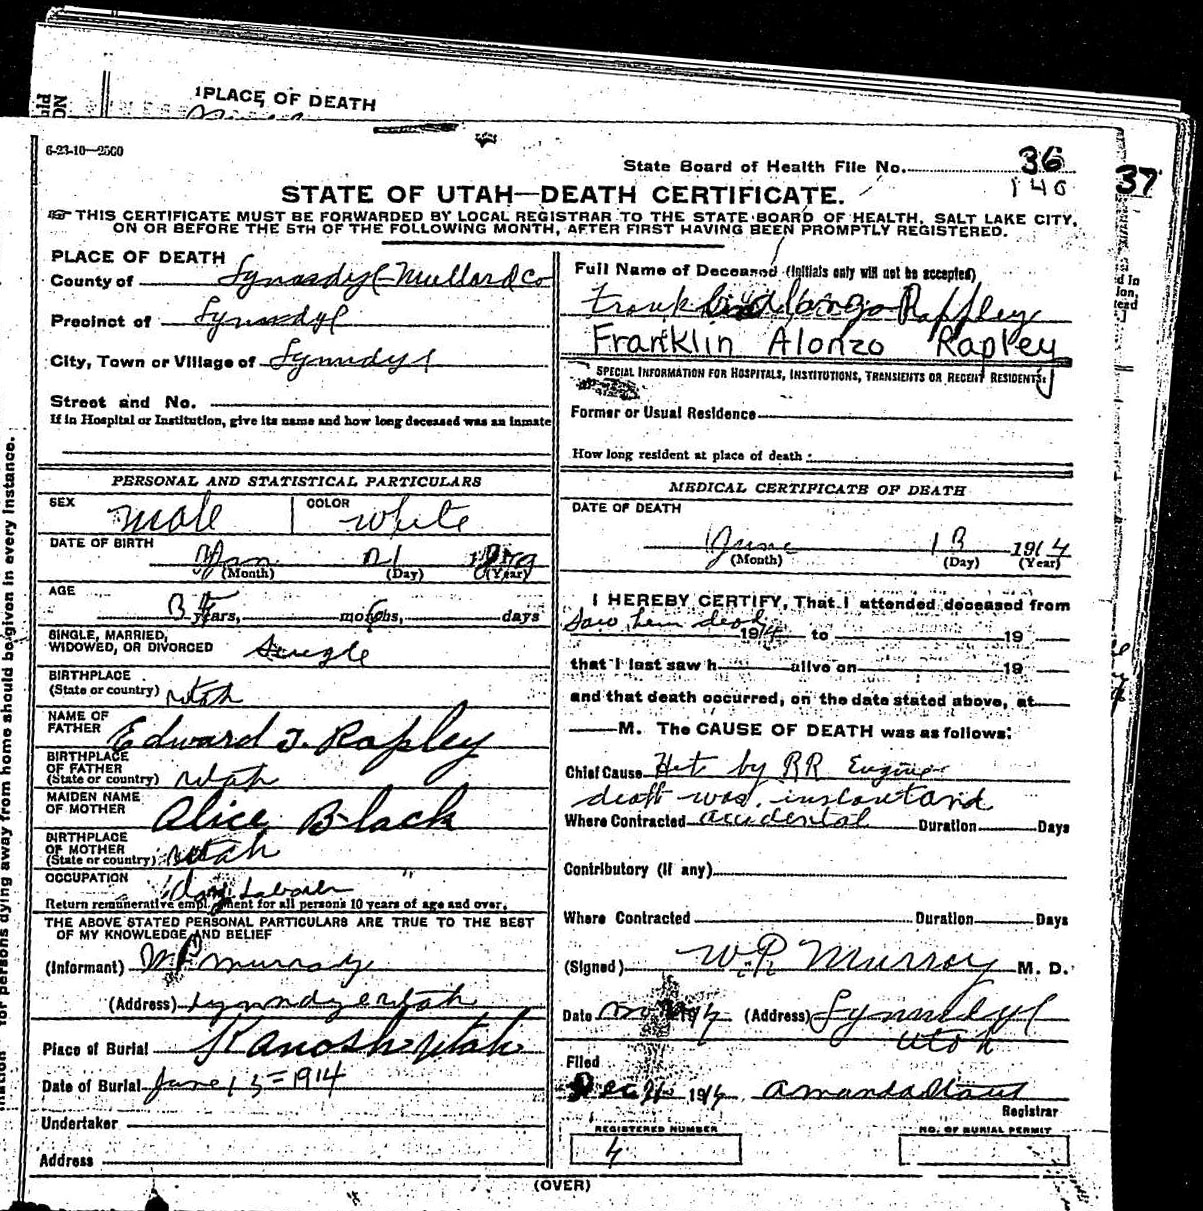 1 PLACE OF DEATH
6-23-10—2500
State Board of Health File No. 36
140
37
STATE OF UTAH—DEATH CERTIFICATE.
THIS CERTIFICATE MUST BE FORWARDED BY LOCAL REGISTRAR TO THE STATE BOARD OF HEALTH, SALT LAKE CITY,
ON OR BEFORE THE 5TH OF THE FOLLOWING MONTH, AFTER FIRST HAVING BEEN PROMPTLY REGISTERED.
PLACE OF DEATH
County of Lynndyl-Millard Co
Precinct of Lynndyl
City, Town or Village of Lynndyl
Street and No.
If in Hospital or Institution, give its name and how long deceased was an inmate
Full Name of Deceased (Initials only will not be accepted)
Rappley
Franklin Alonzo Rapley
SPECIAL INFORMATION FOR HOSPITALS, INSTITUTIONS, TRANSIENTS OR RECENT RESIDENTS:
Former or Usual Residence
How long resident at place of death:
PERSONAL AND STATISTICAL PARTICULARS
SEX male COLOR white
DATE OF BIRTH
Jan 21
(Month) (Day) (Year)
AGE
years, months, days
SINGLE, MARRIED,
WIDOWED, OR DIVORCED Single
BIRTHPLACE
(State or country) Utah
NAME OF
FATHER Edward T. Rapley
BIRTHPLACE
OF FATHER
(State or country) Utah
MAIDEN NAME
OF MOTHER Alice Black
BIRTHPLACE
OF MOTHER
(State or country) Utah
OCCUPATION Day Laborer
Return remunerative employment for all persons 10 years of age and over.
THE ABOVE STATED PERSONAL PARTICULARS ARE TRUE TO THE BEST
OF MY KNOWLEDGE AND BELIEF
(Informant) W P Murray
(Address) Lynndyl Utah
Place of Burial Kanosh Utah
Date of Burial June 15=1914
Undertaker
Address
MEDICAL CERTIFICATE OF DEATH
DATE OF DEATH
June 13 1914
(Month) (Day) (Year)
I HEREBY CERTIFY, That I attended deceased from
Saw him dead 1914 to 19
that I last saw h alive on 19
and that death occurred, on the date stated above, at
M. The CAUSE OF DEATH was as follows:
Chief Cause Hit by RR Engine
death was
Where Contracted accidental Duration Days
Contributory (if any)
Where Contracted Duration Days
(Signed) W.P. Murray M. D.
Date 1914 (Address) Lynndyl
Utah
Filed
Dec 191
Registrar
REGISTERED NUMBER
4
NO. OF BURIAL PERMIT
(OVER)
for persons dying away from home should be given in every instance.